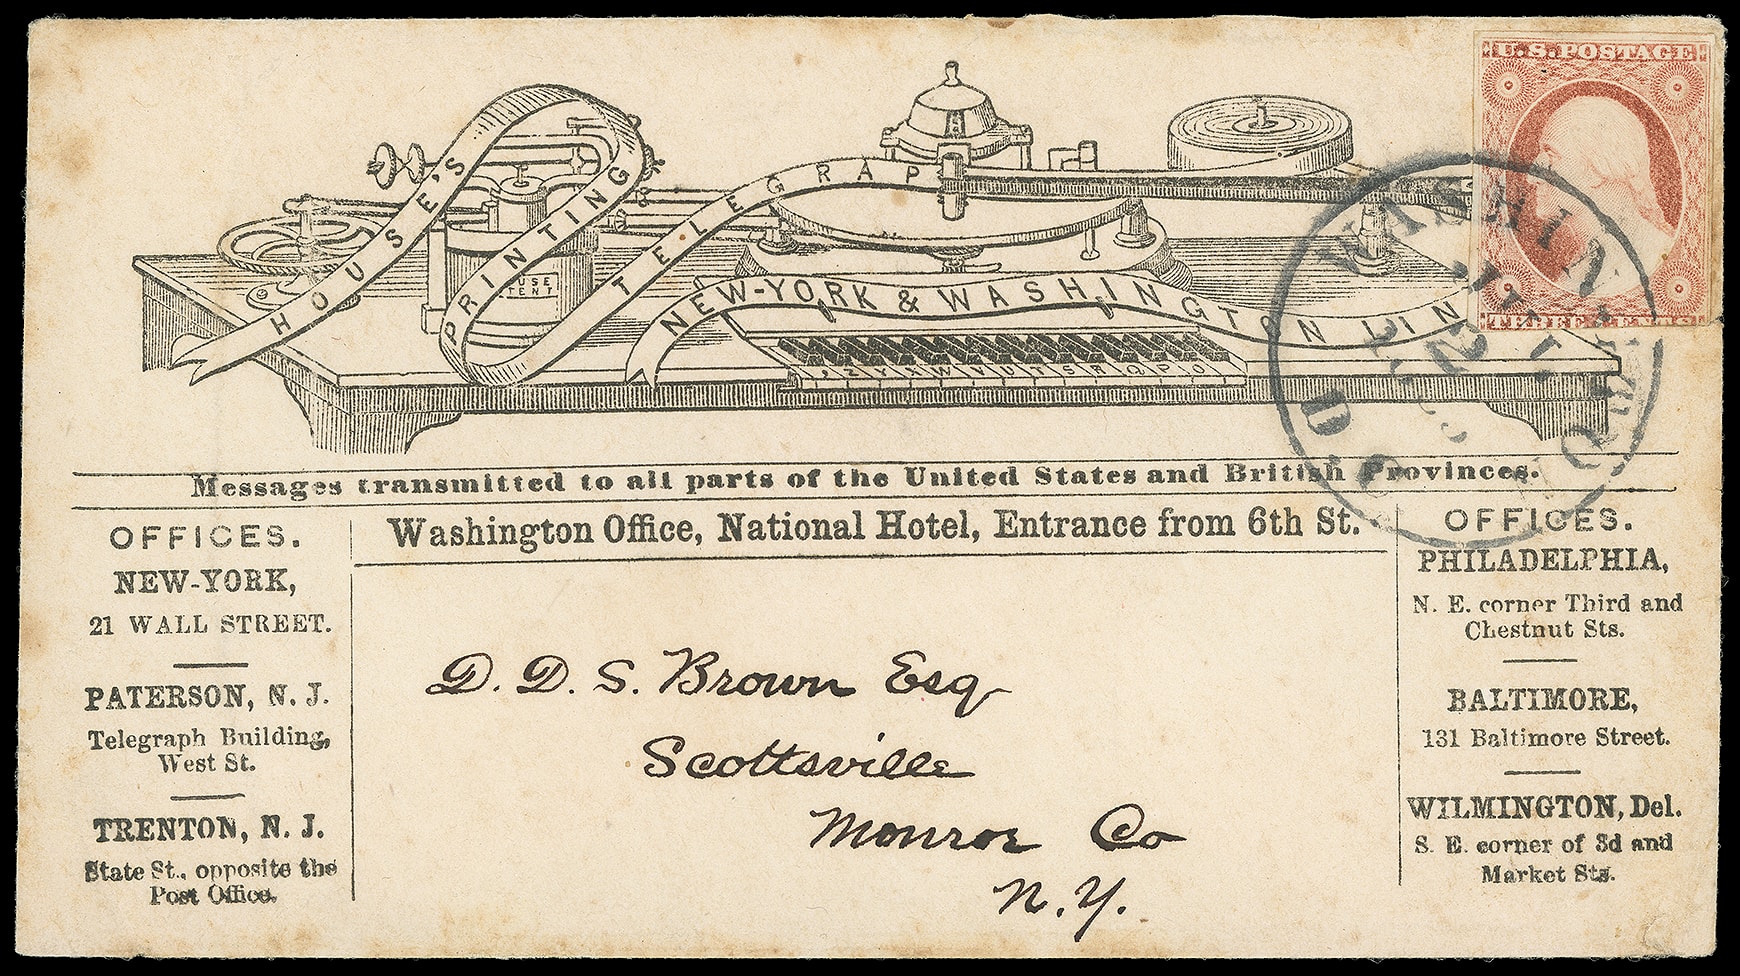 U.S. POSTAGE
THREE CENTS
HOUSE'S
PRINTING
TELEGRAP
NEW-YORK & WASHINGTON LIN
USE
TENT
, Z Y X W V U T S R Q P O
WASHIN
D.C.
Messages transmitted to all parts of the United States and British Provinces.
Washington Office, National Hotel, Entrance from 6th St.
OFFICES.
NEW-YORK,
21 WALL STREET.
PATERSON, N. J.
Telegraph Building,
West St.
TRENTON, N. J.
State St., opposite the
Post Office.
D. D. S. Brown Esq
Scottsville
Monroe Co
N.Y.
OFFICES.
PHILADELPHIA,
N. E. corner Third and
Chestnut Sts.
BALTIMORE,
131 Baltimore Street.
WILMINGTON, Del.
S. E. corner of 3d and
Market Sts.